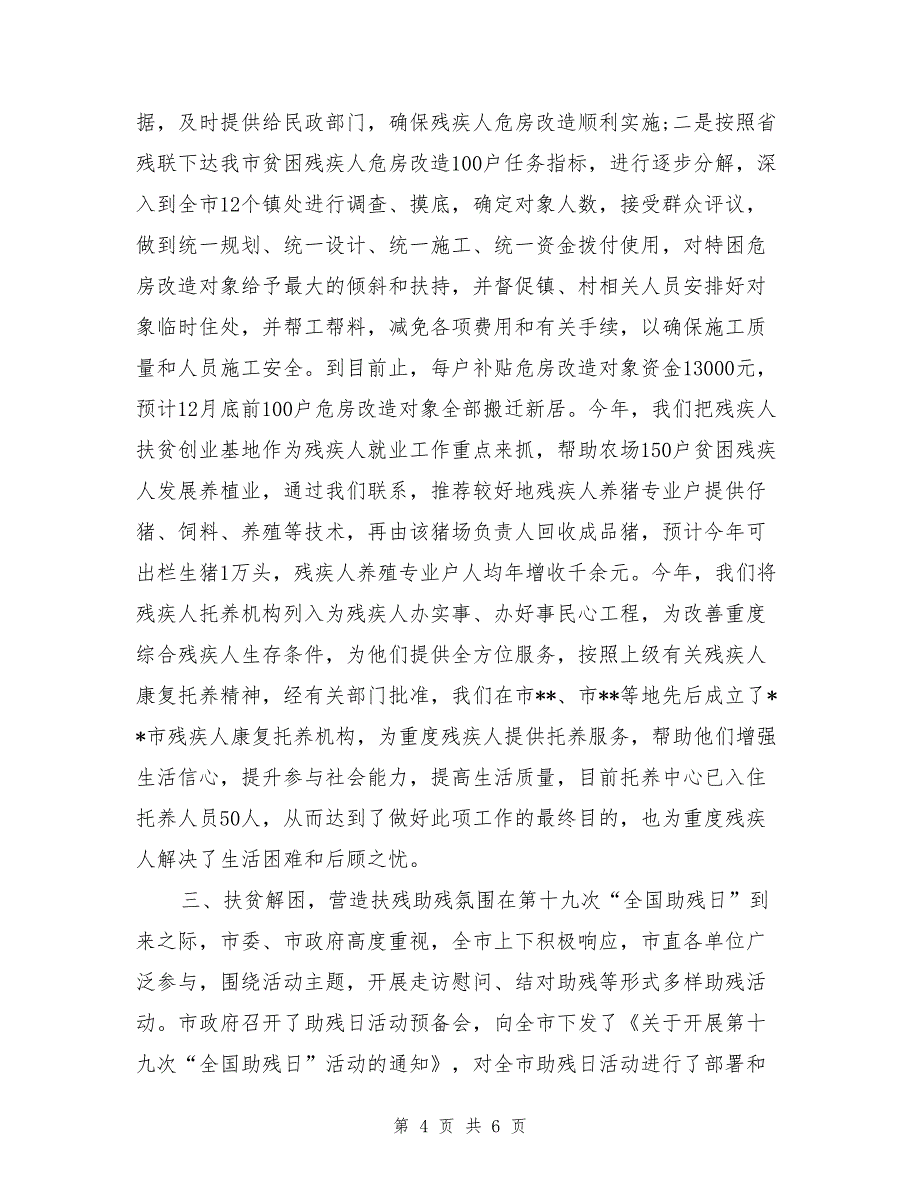 据，及时提供给民政部门，确保残疾人危房改造顺利实施;二是按照省
残联下达我市贫困残疾人危房改造100户任务指标，进行逐步分解，深
入到全市12个镇处进行调查、摸底，确定对象人数，接受群众评议，
做到统一规划、统一设计、统一施工、统一资金拨付使用，对特困危
房改造对象给予最大的倾斜和扶持，并督促镇、村相关人员安排好对
象临时住处，并帮工帮料，减免各项费用和有关手续，以确保施工质
量和人员施工安全。到目前止，每户补贴危房改造对象资金13000元，
预计12月底前100户危房改造对象全部搬迁新居。今年，我们把残疾人
扶贫创业基地作为残疾人就业工作重点来抓，帮助农场150户贫困残疾
人发展养植业，通过我们联系，推荐较好地残疾人养猪专业户提供仔
猪、饲料、养殖等技术，再由该猪场负责人回收成品猪，预计今年可
出栏生猪1万头，残疾人养殖专业户人均年增收千余元。今年，我们将
残疾人托养机构列入为残疾人办实事、办好事民心工程，为改善重度
综合残疾人生存条件，为他们提供全方位服务，按照上级有关残疾人
康复托养精神，经有关部门批准，我们在市**、市**等地先后成立了*
*市残疾人康复托养机构，为重度残疾人提供托养服务，帮助他们增强
生活信心，提升参与社会能力，提高生活质量，目前托养中心已入住
托养人员50人，从而达到了做好此项工作的最终目的，也为重度残疾
人解决了生活困难和后顾之忧。
三、扶贫解困，营造扶残助残氛围在第十九次“全国助残日”到
来之际，市委、市政府高度重视，全市上下积极响应，市直各单位广
泛参与，围绕活动主题，开展走访慰问、结对助残等形式多样助残活
动。市政府召开了助残日活动预备会，向全市下发了《关于开展第十
九次“全国助残日”活动的通知》，对全市助残日活动进行了部署和
第 4 页 共 6 页